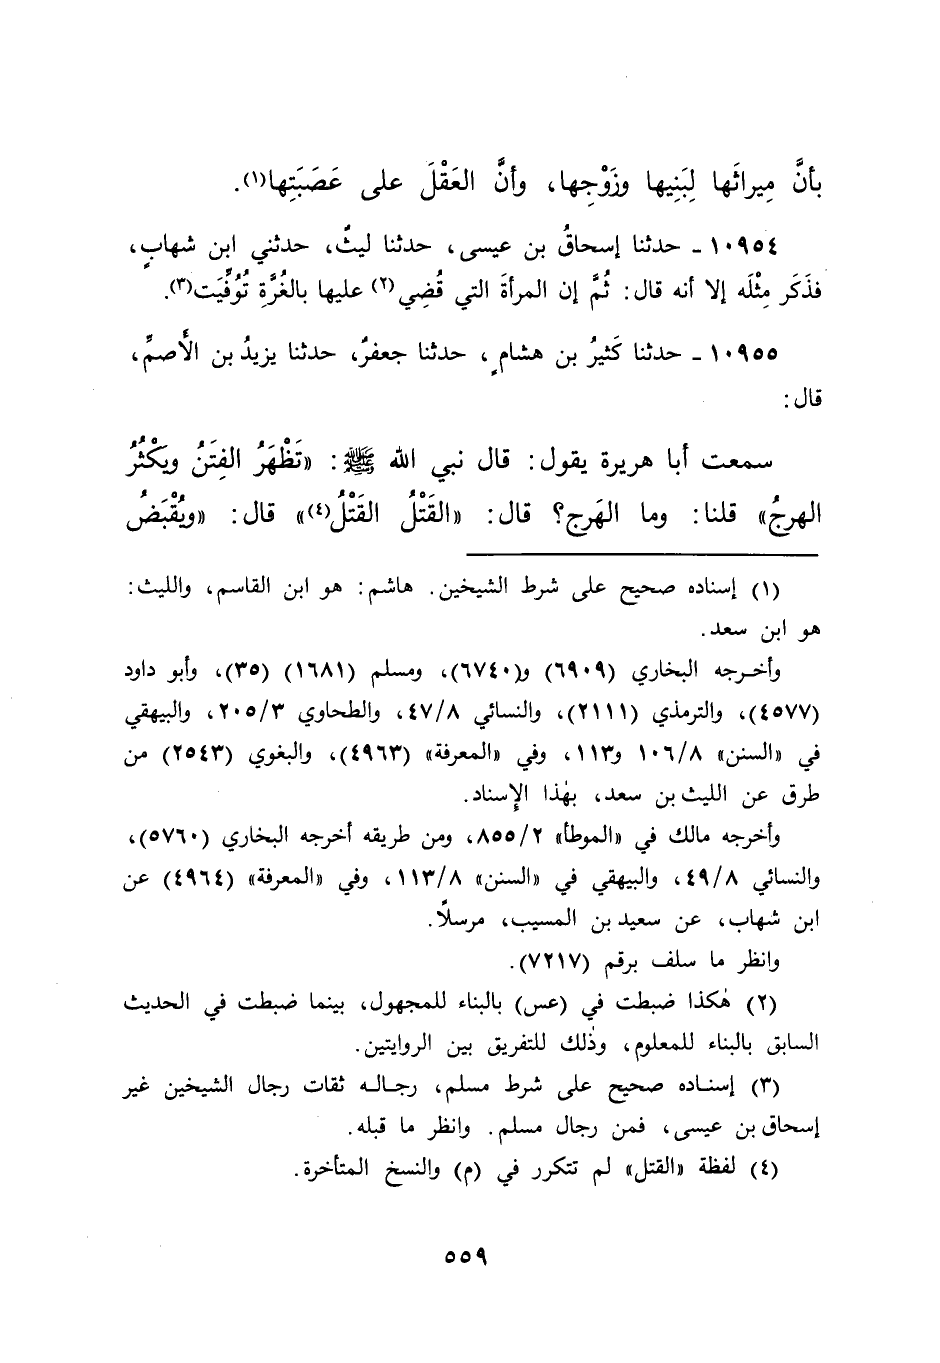 بأنَّ مِيراثَها لِبَنِيها وزَوْجِها، وأنَّ العَقْلَ على عَصَبَتِها(١).
١٠٩٥٤ ـ حدثنا إسحاقُ بن عيسى، حدثنا ليثٌ، حدثني ابن شهابٍ،
فذَكَر مِثْلَه إلا أنه قال: ثُمَّ إن المرأةَ التي قُضِي(٢) عليها بالغُرَّةِ تُوُفِّيَت(٣).
١٠٩٥٥ ـ حدثنا كَثيرُ بن هشامٍ، حدثنا جعفرٌ، حدثنا يزيدُ بن الأَصمِّ،
قال:
سمعت أبا هريرة يقول: قال نبي الله ﷺ: «تَظْهَرُ الفِتَنُ ويَكْثُرُ
الهرجُ» قلنا: وما الهَرج؟ قال: «القَتْلُ القَتْلُ(٤)» قال: «ويُقْبَضُ
(١) إسناده صحيح على شرط الشيخين. هاشم: هو ابن القاسم، والليث:
هو ابن سعد.
وأخرجه البخاري (٦٩٠٩) و(٦٧٤٠)، ومسلم (١٦٨١) (٣٥)، وأبو داود
(٤٥٧٧)، والترمذي (٢١١١)، والنسائي ٤٧/٨، والطحاوي ٢٠٥/٣، والبيهقي
في «السنن» ١٠٦/٨ و١١٣، وفي «المعرفة» (٤٩٦٣)، والبغوي (٢٥٤٣) من
طرق عن الليث بن سعد، بهٰذا الإِسناد.
وأخرجه مالك في «الموطأ» ٨٥٥/٢، ومن طريقه أخرجه البخاري (٥٧٦٠)،
والنسائي ٤٩/٨، والبيهقي في «السنن» ١١٣/٨، وفي «المعرفة» (٤٩٦٤) عن
ابن شهاب، عن سعيد بن المسيب، مرسلاً.
وانظر ما سلف برقم (٧٢١٧).
(٢) هٰكذا ضبطت في (عس) بالبناء للمجهول، بينما ضبطت في الحديث
السابق بالبناء للمعلوم، وذٰلك للتفريق بين الروايتين.
(٣) إسناده صحيح على شرط مسلم، رجاله ثقات رجال الشيخين غير
إسحاق بن عيسى، فمن رجال مسلم. وانظر ما قبله.
(٤) لفظة «القتل» لم تتكرر في (م) والنسخ المتأخرة.
٥٥٩